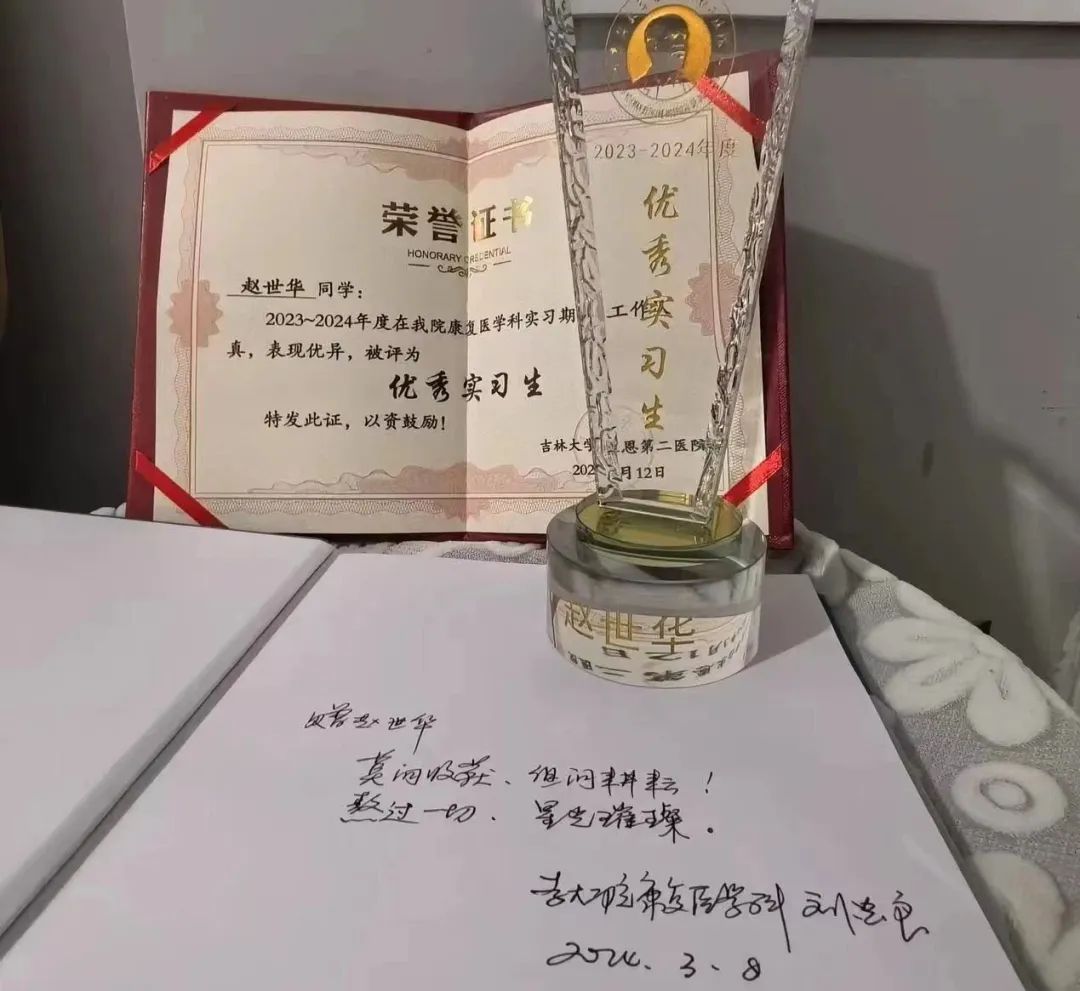 荣誉证书
HONORARY CREDENTIAL
赵世华 同学：
2023~2024年度在我院康复医学科实习期 工作
真，表现优异，被评为
优秀实习生
特发此证，以资鼓励！
吉林大学 恩第二医院
202 月12日
2023-2024年度
优秀实习生
赵世华
赠赵世华
莫问收获、但问耕耘！
熬过一切、星光璀璨。
吉大二院康复医学科 刘忠良
2024.3.8